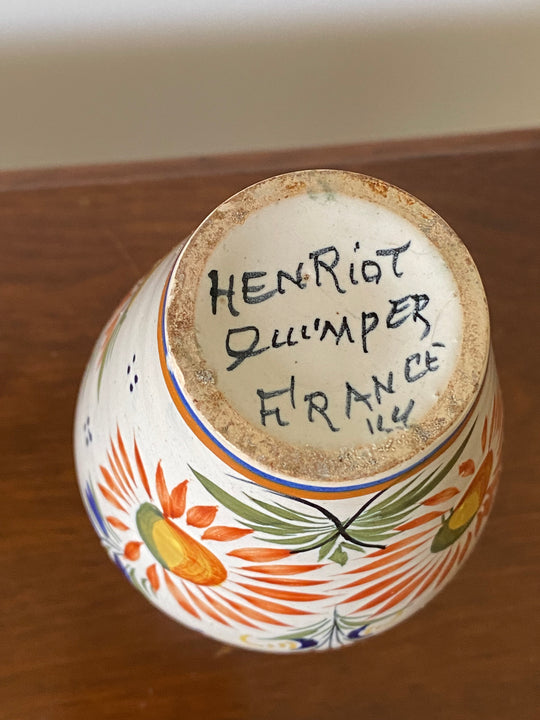 HENRIOT
QUIMPER
FRANCE